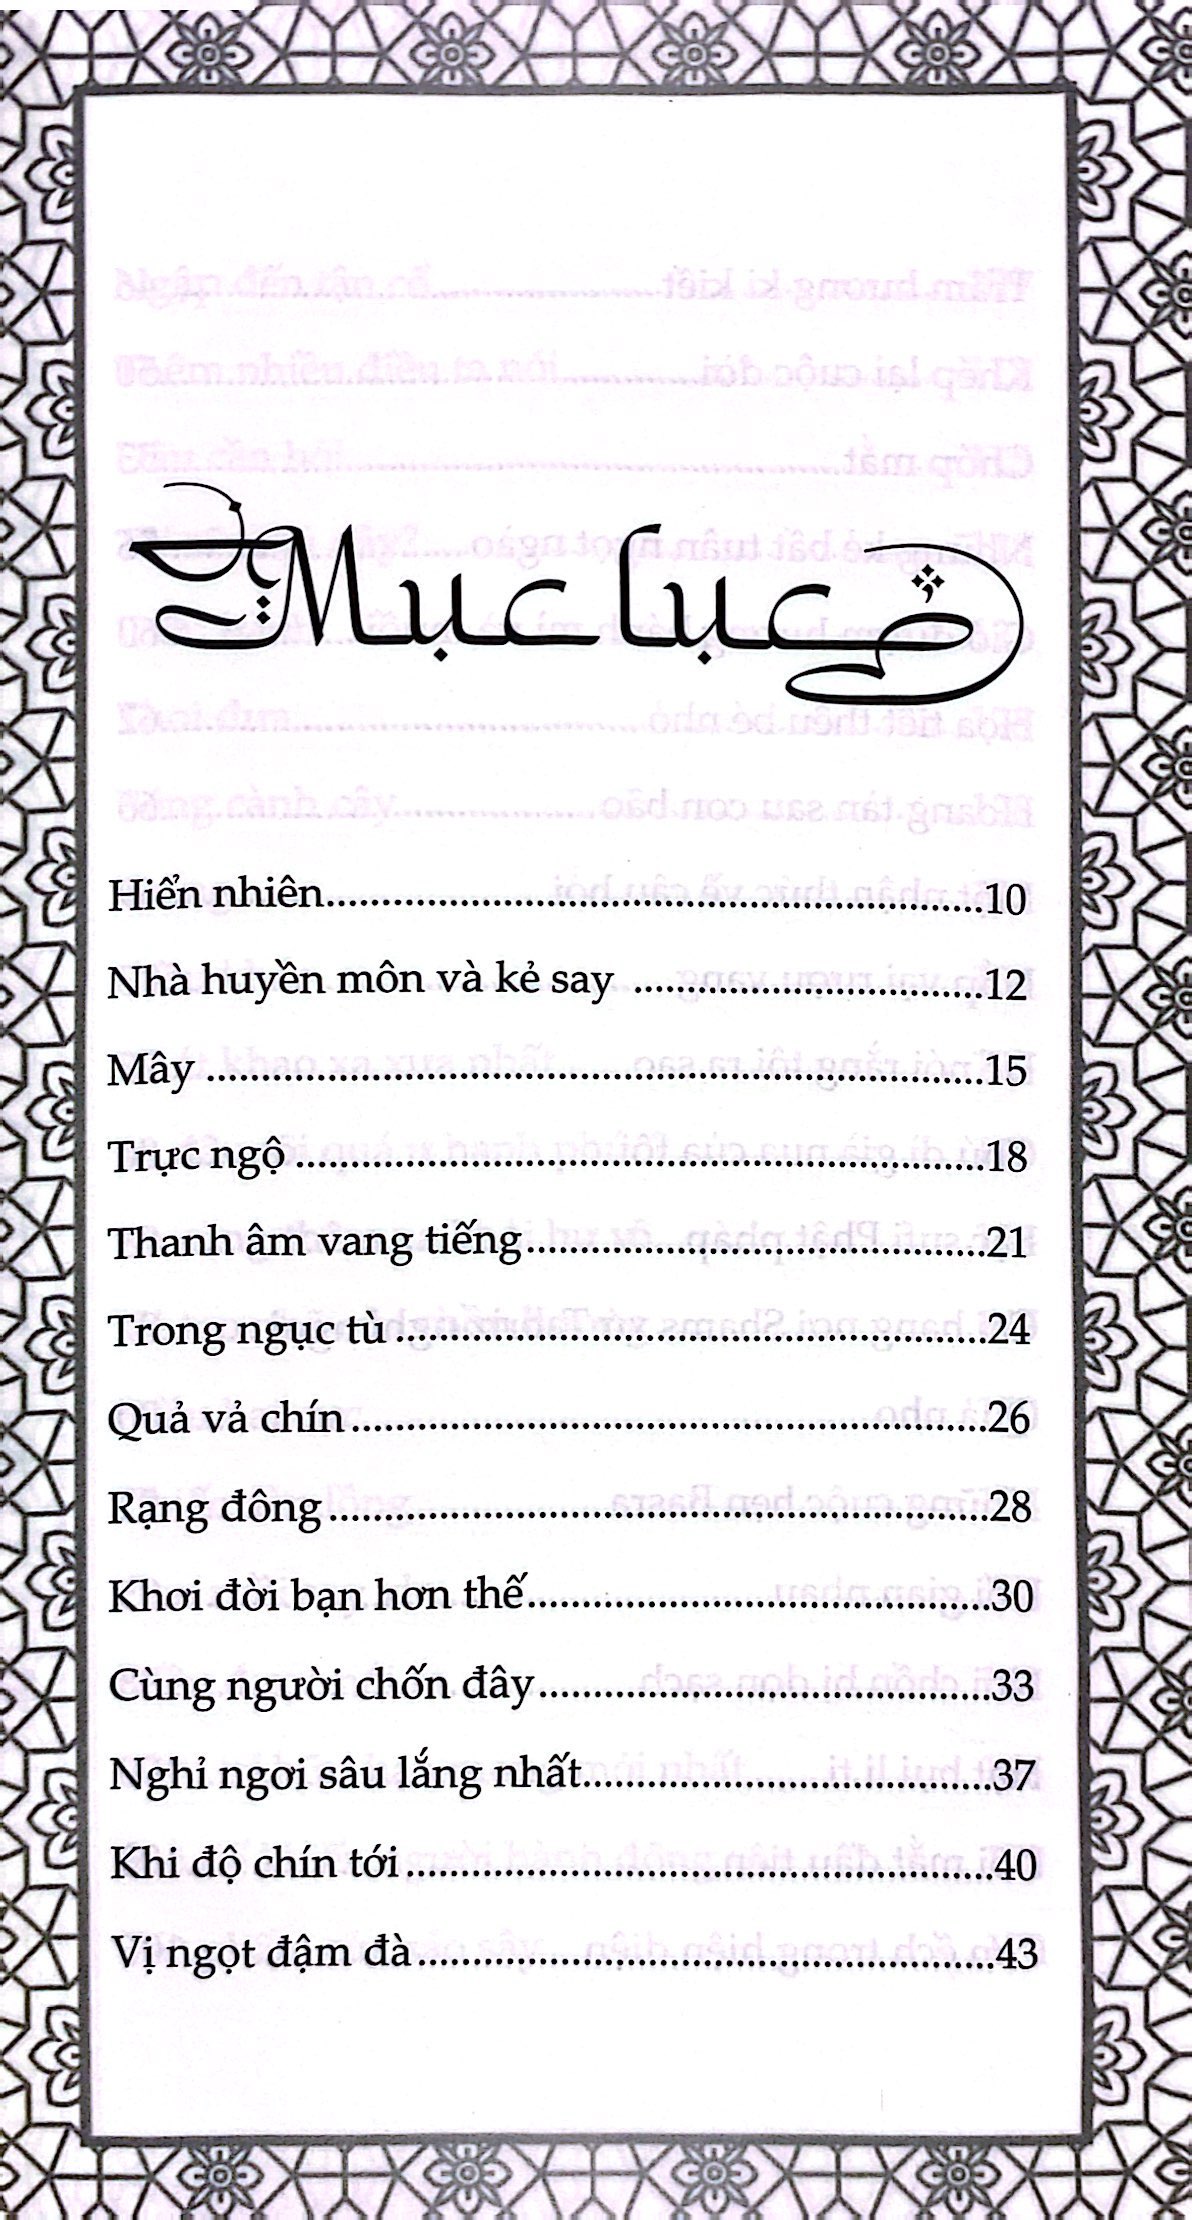 Mục lục
Hiển nhiên..........10
Nhà huyền môn và kẻ say ..........12
Mây ..........15
Trực ngộ ..........18
Thanh âm vang tiếng..........21
Trong ngục tù ..........24
Quả vả chín..........26
Rạng đông..........28
Khơi đời bạn hơn thế..........30
Cùng người chốn đây..........33
Nghỉ ngơi sâu lắng nhất..........37
Khi độ chín tới..........40
Vị ngọt đậm đà..........43